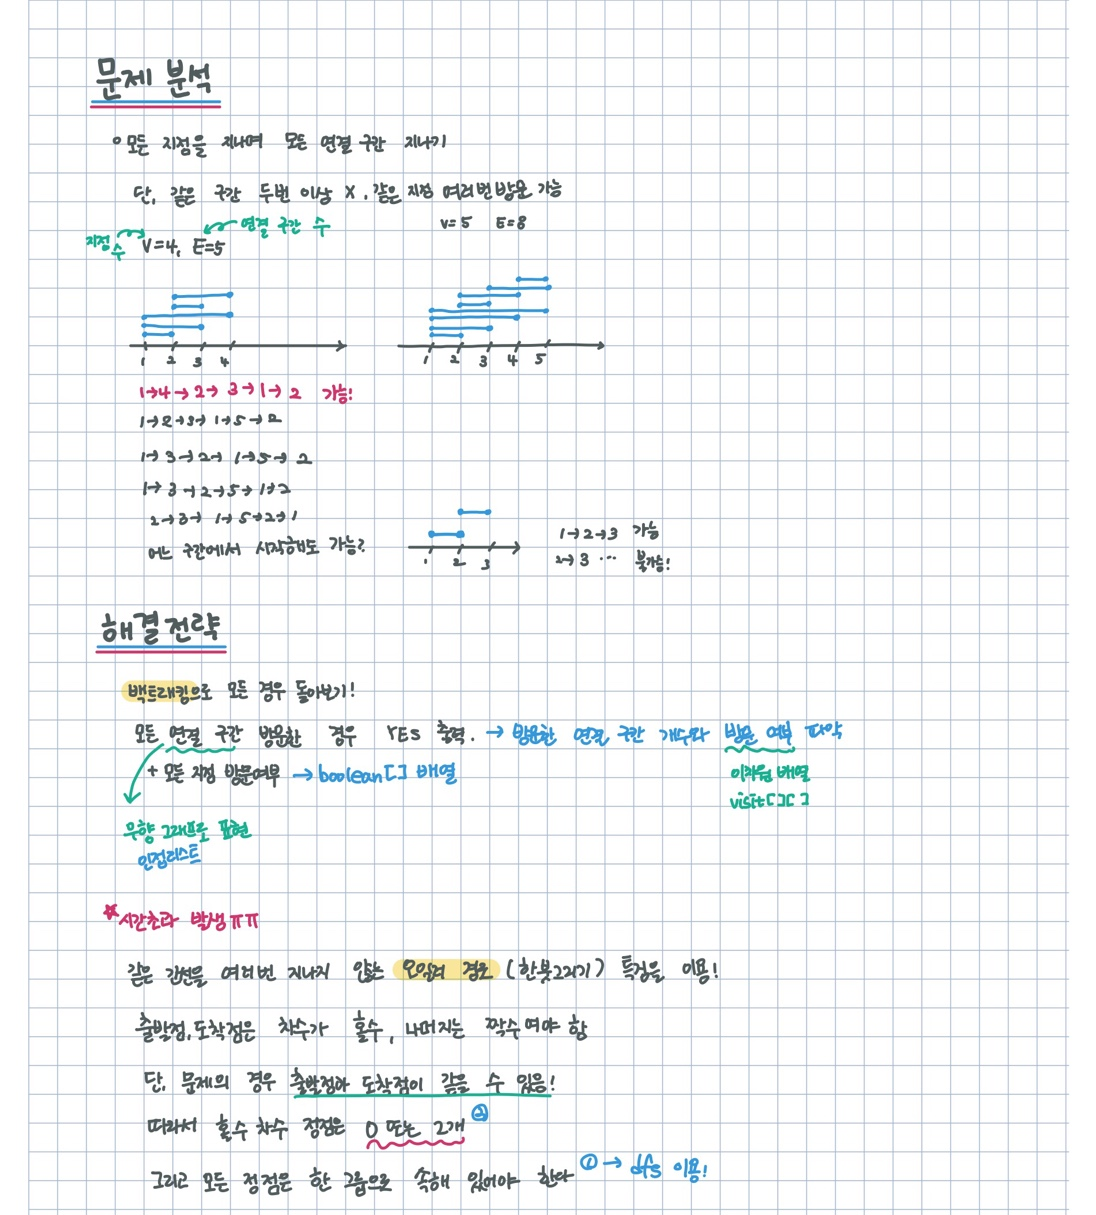 문제 분석
모든 지점을 지나며 모든 연결 구간 지나기
단, 같은 구간 두번 이상 X, 같은 지점 여러번 방문 가능
지점 수 V=4, E=5 연결 구간 수
V=5 E=8
1 2 3 4
1 2 3 4 5
1→4→2→3→1→2 가능!
1→2→3→1→5→2
1→3→2→1→5→2
1→3→2→5→1→2
2→3→1→5→2→1
어느 구간에서 시작해도 가능?
1 2 3
1→2→3 가능
2→3 ··· 불가능!
해결전략
백트래킹으로 모든 경우 돌아보기!
모든 연결 구간 방문한 경우 YES 출력. → 방문한 연결 구간 개수와 방문 여부 파악
+ 모든 지점 방문여부 → boolean[] 배열
이차원 배열
visit[][]
무향 그래프로 표현
인접리스트
*시간초과 발생ㅠㅠ
같은 간선을 여러번 지나지 않는 오일러 경로 (한붓그리기) 특징을 이용!
출발점, 도착점은 차수가 홀수, 나머지는 짝수여야 함
단, 문제의 경우 출발점과 도착점이 같을 수 있음!
따라서 홀수 차수 정점은 0 또는 2개 ②
그리고 모든 정점은 한 그룹으로 속해 있어야 한다 ① → dfs 이용!